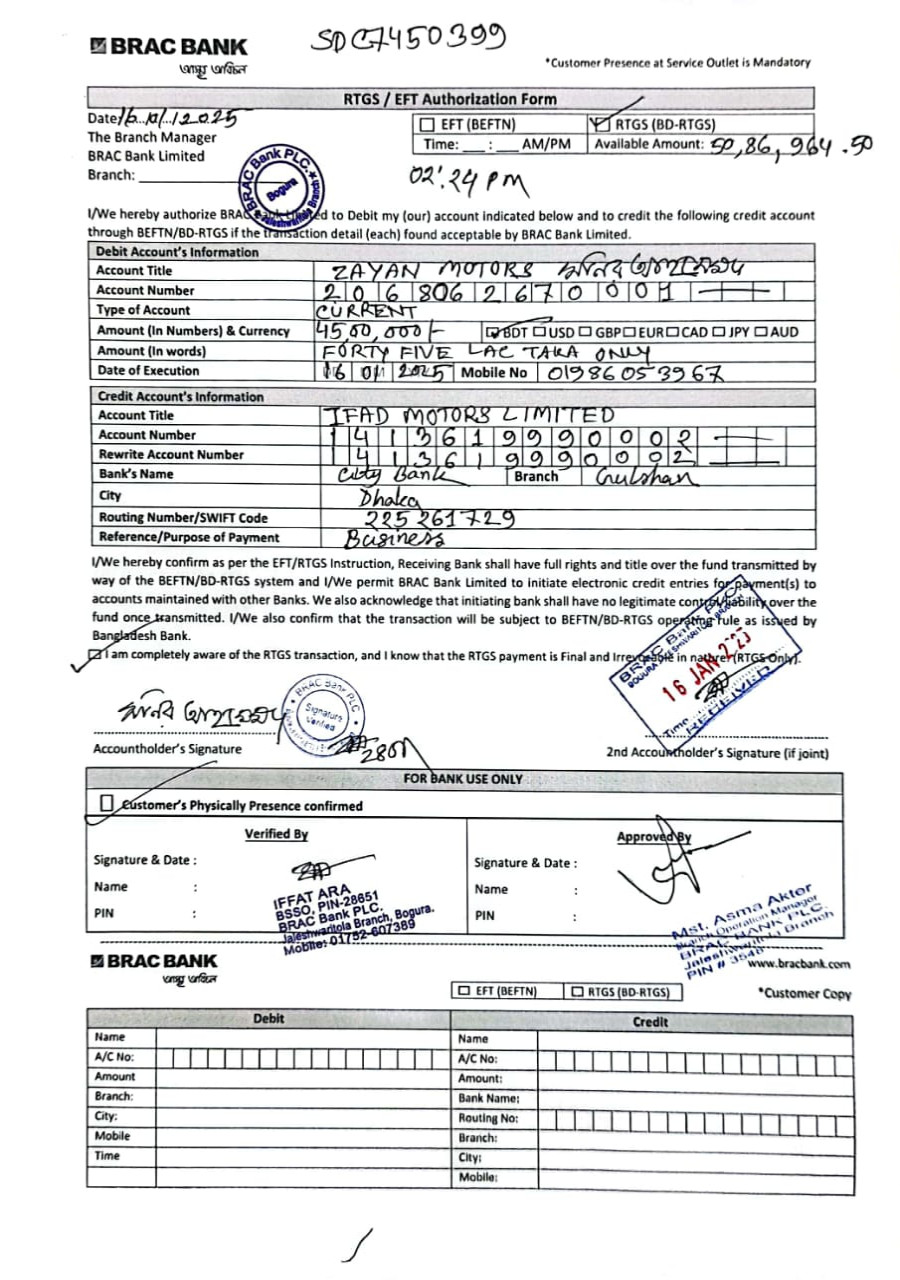 BRAC BANK
SDC7450399
আস্থা অবিচল
*Customer Presence at Service Outlet is Mandatory
RTGS / EFT Authorization Form
Date 16.01.2025
EFT (BEFTN) RTGS (BD-RTGS)
The Branch Manager
Time: __ : __ AM/PM Available Amount: 50,86,964.50
BRAC Bank Limited
Branch:
02:24 PM
BRAC Bank PLC.
Bogura
Jaleshwaritola Branch
I/We hereby authorize BRAC Bank Limited to Debit my (our) account indicated below and to credit the following credit account
through BEFTN/BD-RTGS if the transaction detail (each) found acceptable by BRAC Bank Limited.
Debit Account's Information
Account Title ZAYAN MOTORS
Account Number 2068062670001
Type of Account CURRENT
Amount (In Numbers) & Currency 4500,000/- BDT USD GBP EUR CAD JPY AUD
Amount (In words) FORTY FIVE LAC TAKA ONLY
Date of Execution 16 01 2025 Mobile No 01986053967
Credit Account's Information
Account Title IFAD MOTORS LIMITED
Account Number 1413619990002
Rewrite Account Number 1413619990002
Bank's Name City Bank Branch Gulshan
City Dhaka
Routing Number/SWIFT Code 225261729
Reference/Purpose of Payment Business
I/We hereby confirm as per the EFT/RTGS Instruction, Receiving Bank shall have full rights and title over the fund transmitted by
way of the BEFTN/BD-RTGS system and I/We permit BRAC Bank Limited to initiate electronic credit entries for payment(s) to
accounts maintained with other Banks. We also acknowledge that initiating bank shall have no legitimate control/liability over the
fund once transmitted. I/We also confirm that the transaction will be subject to BEFTN/BD-RTGS operating rule as issued by
Bangladesh Bank.
I am completely aware of the RTGS transaction, and I know that the RTGS payment is Final and Irrevocable in nature (RTGS Only).
BRAC Bank PLC
16 JAN 2025
Time
RECEIVED
BRAC Bank PLC
Signature Verified
Accountholder's Signature
2nd Accountholder's Signature (if joint)
FOR BANK USE ONLY
Customer's Physically Presence confirmed
Verified By
Approved By
Signature & Date :
Signature & Date :
Name :
Name :
PIN :
PIN :
IFFAT ARA
BSSO, PIN-28651
BRAC Bank PLC.
Jaleshwaritola Branch, Bogura.
Mobile: 01752-607389
Mst. Asma Akter
Branch Operation Manager
BRAC BANK PLC.
Jaleshwaritola Branch
PIN #
BRAC BANK
আস্থা অবিচল
www.bracbank.com
EFT (BEFTN) RTGS (BD-RTGS)
*Customer Copy
Debit Credit
Name Name
A/C No: A/C No:
Amount Amount:
Branch: Bank Name:
City: Routing No:
Mobile Branch:
Time City:
Mobile: